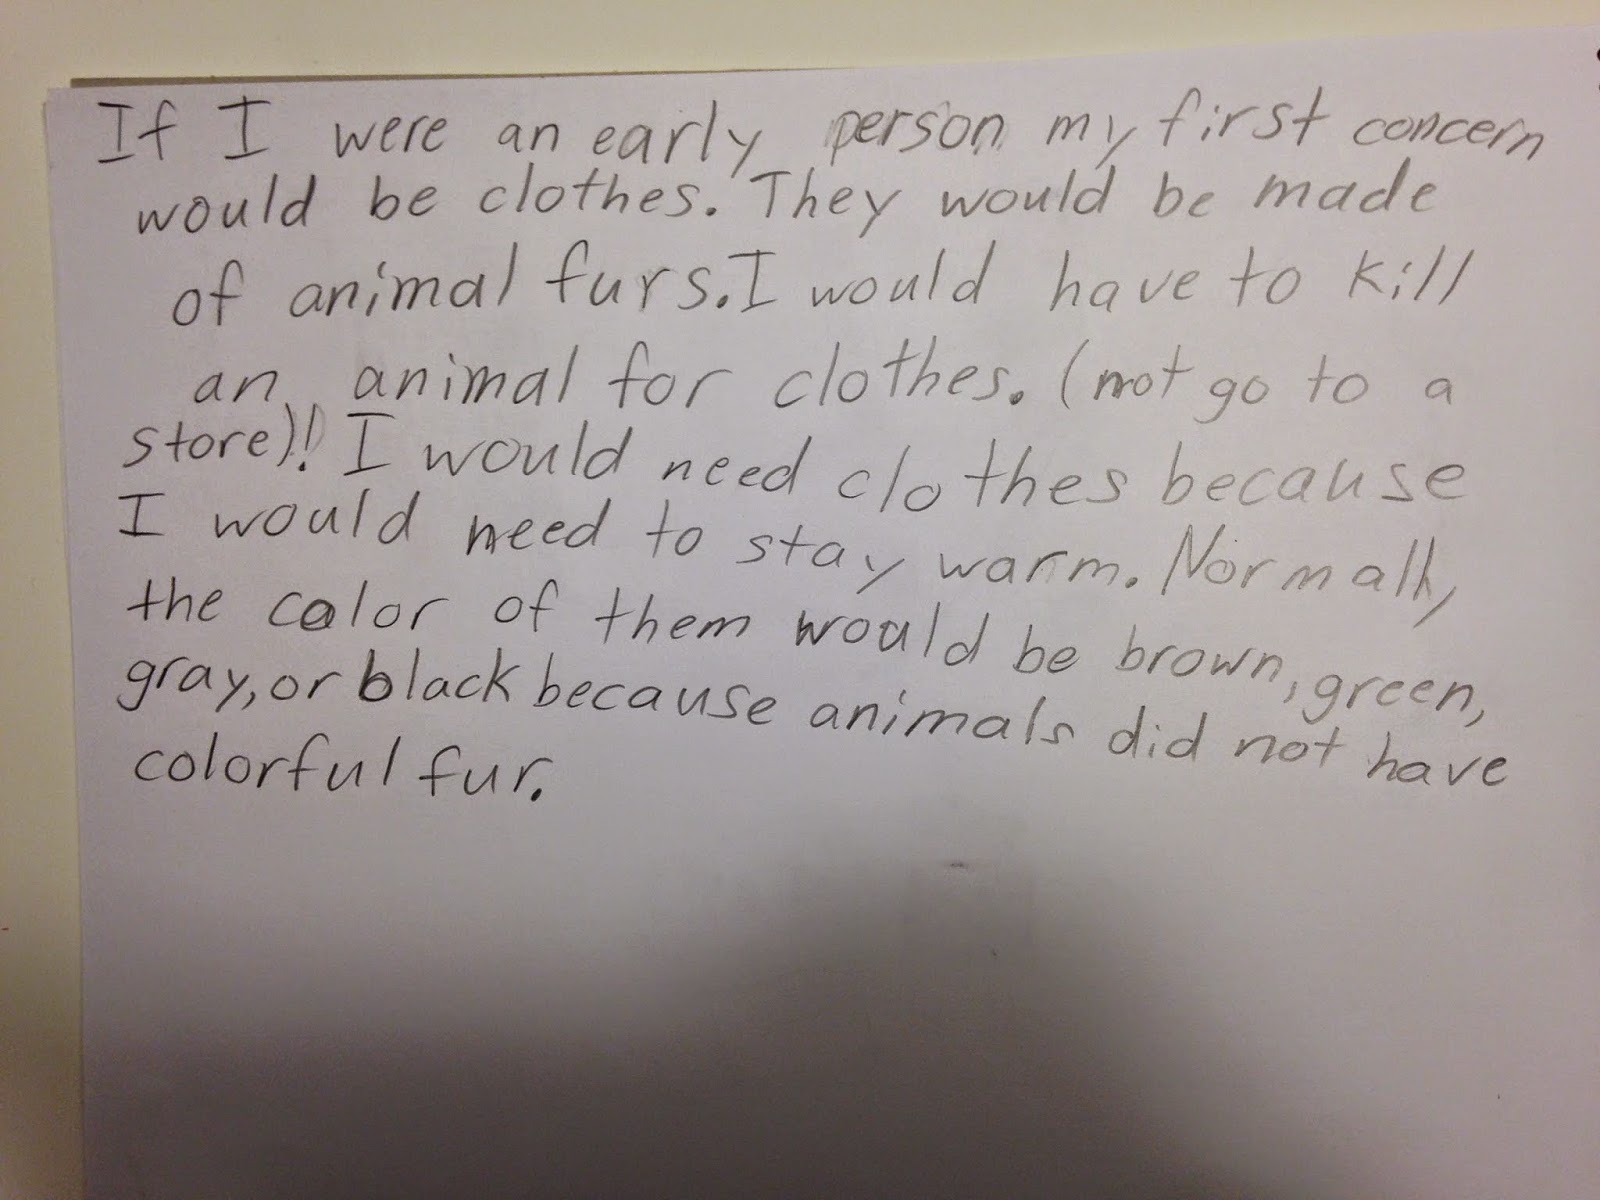 If I were an early person my first concern
would be clothes. They would be made
of animal furs. I would have to kill
an animal for clothes. (not go to a
store)! I would need clothes because
I would need to stay warm. Normally
the color of them would be brown, green,
gray, or black because animals did not have
colorful fur.